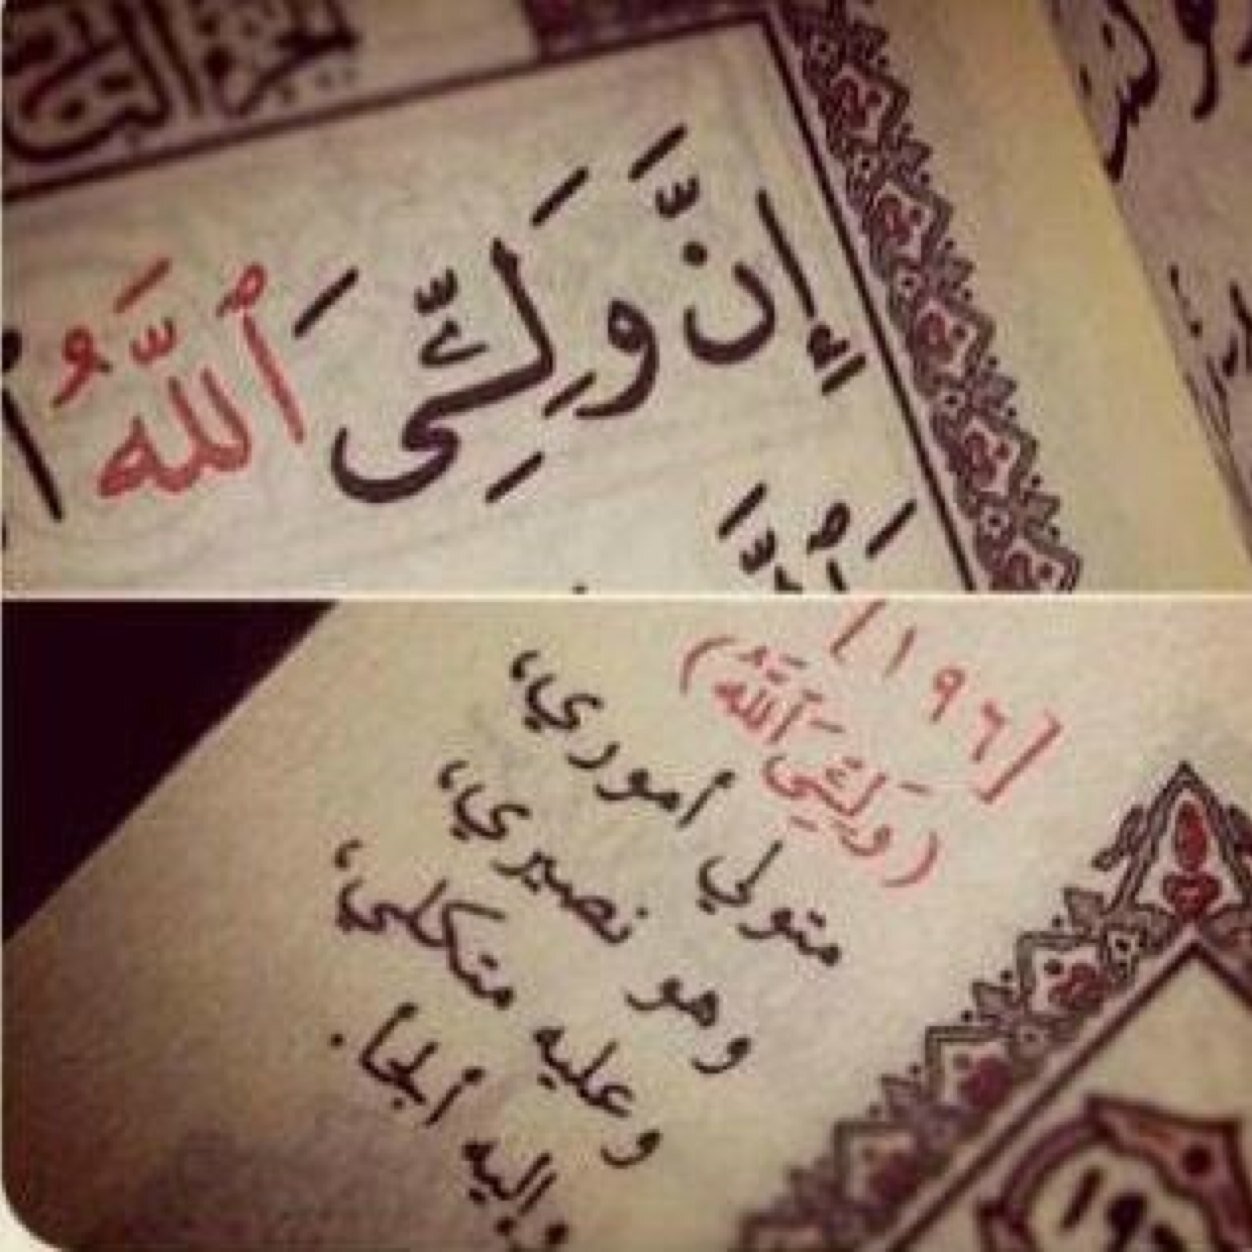 الجزء التاسع
إِنَّ وَلِـِّۧىَ ٱللَّهُ
[١٩٦]
(وَلِـِّۧيَ ٱللَّهُ)
متولي أموري،
وهو نصيري،
وعليه متكلي،
وإليه ألجأ.